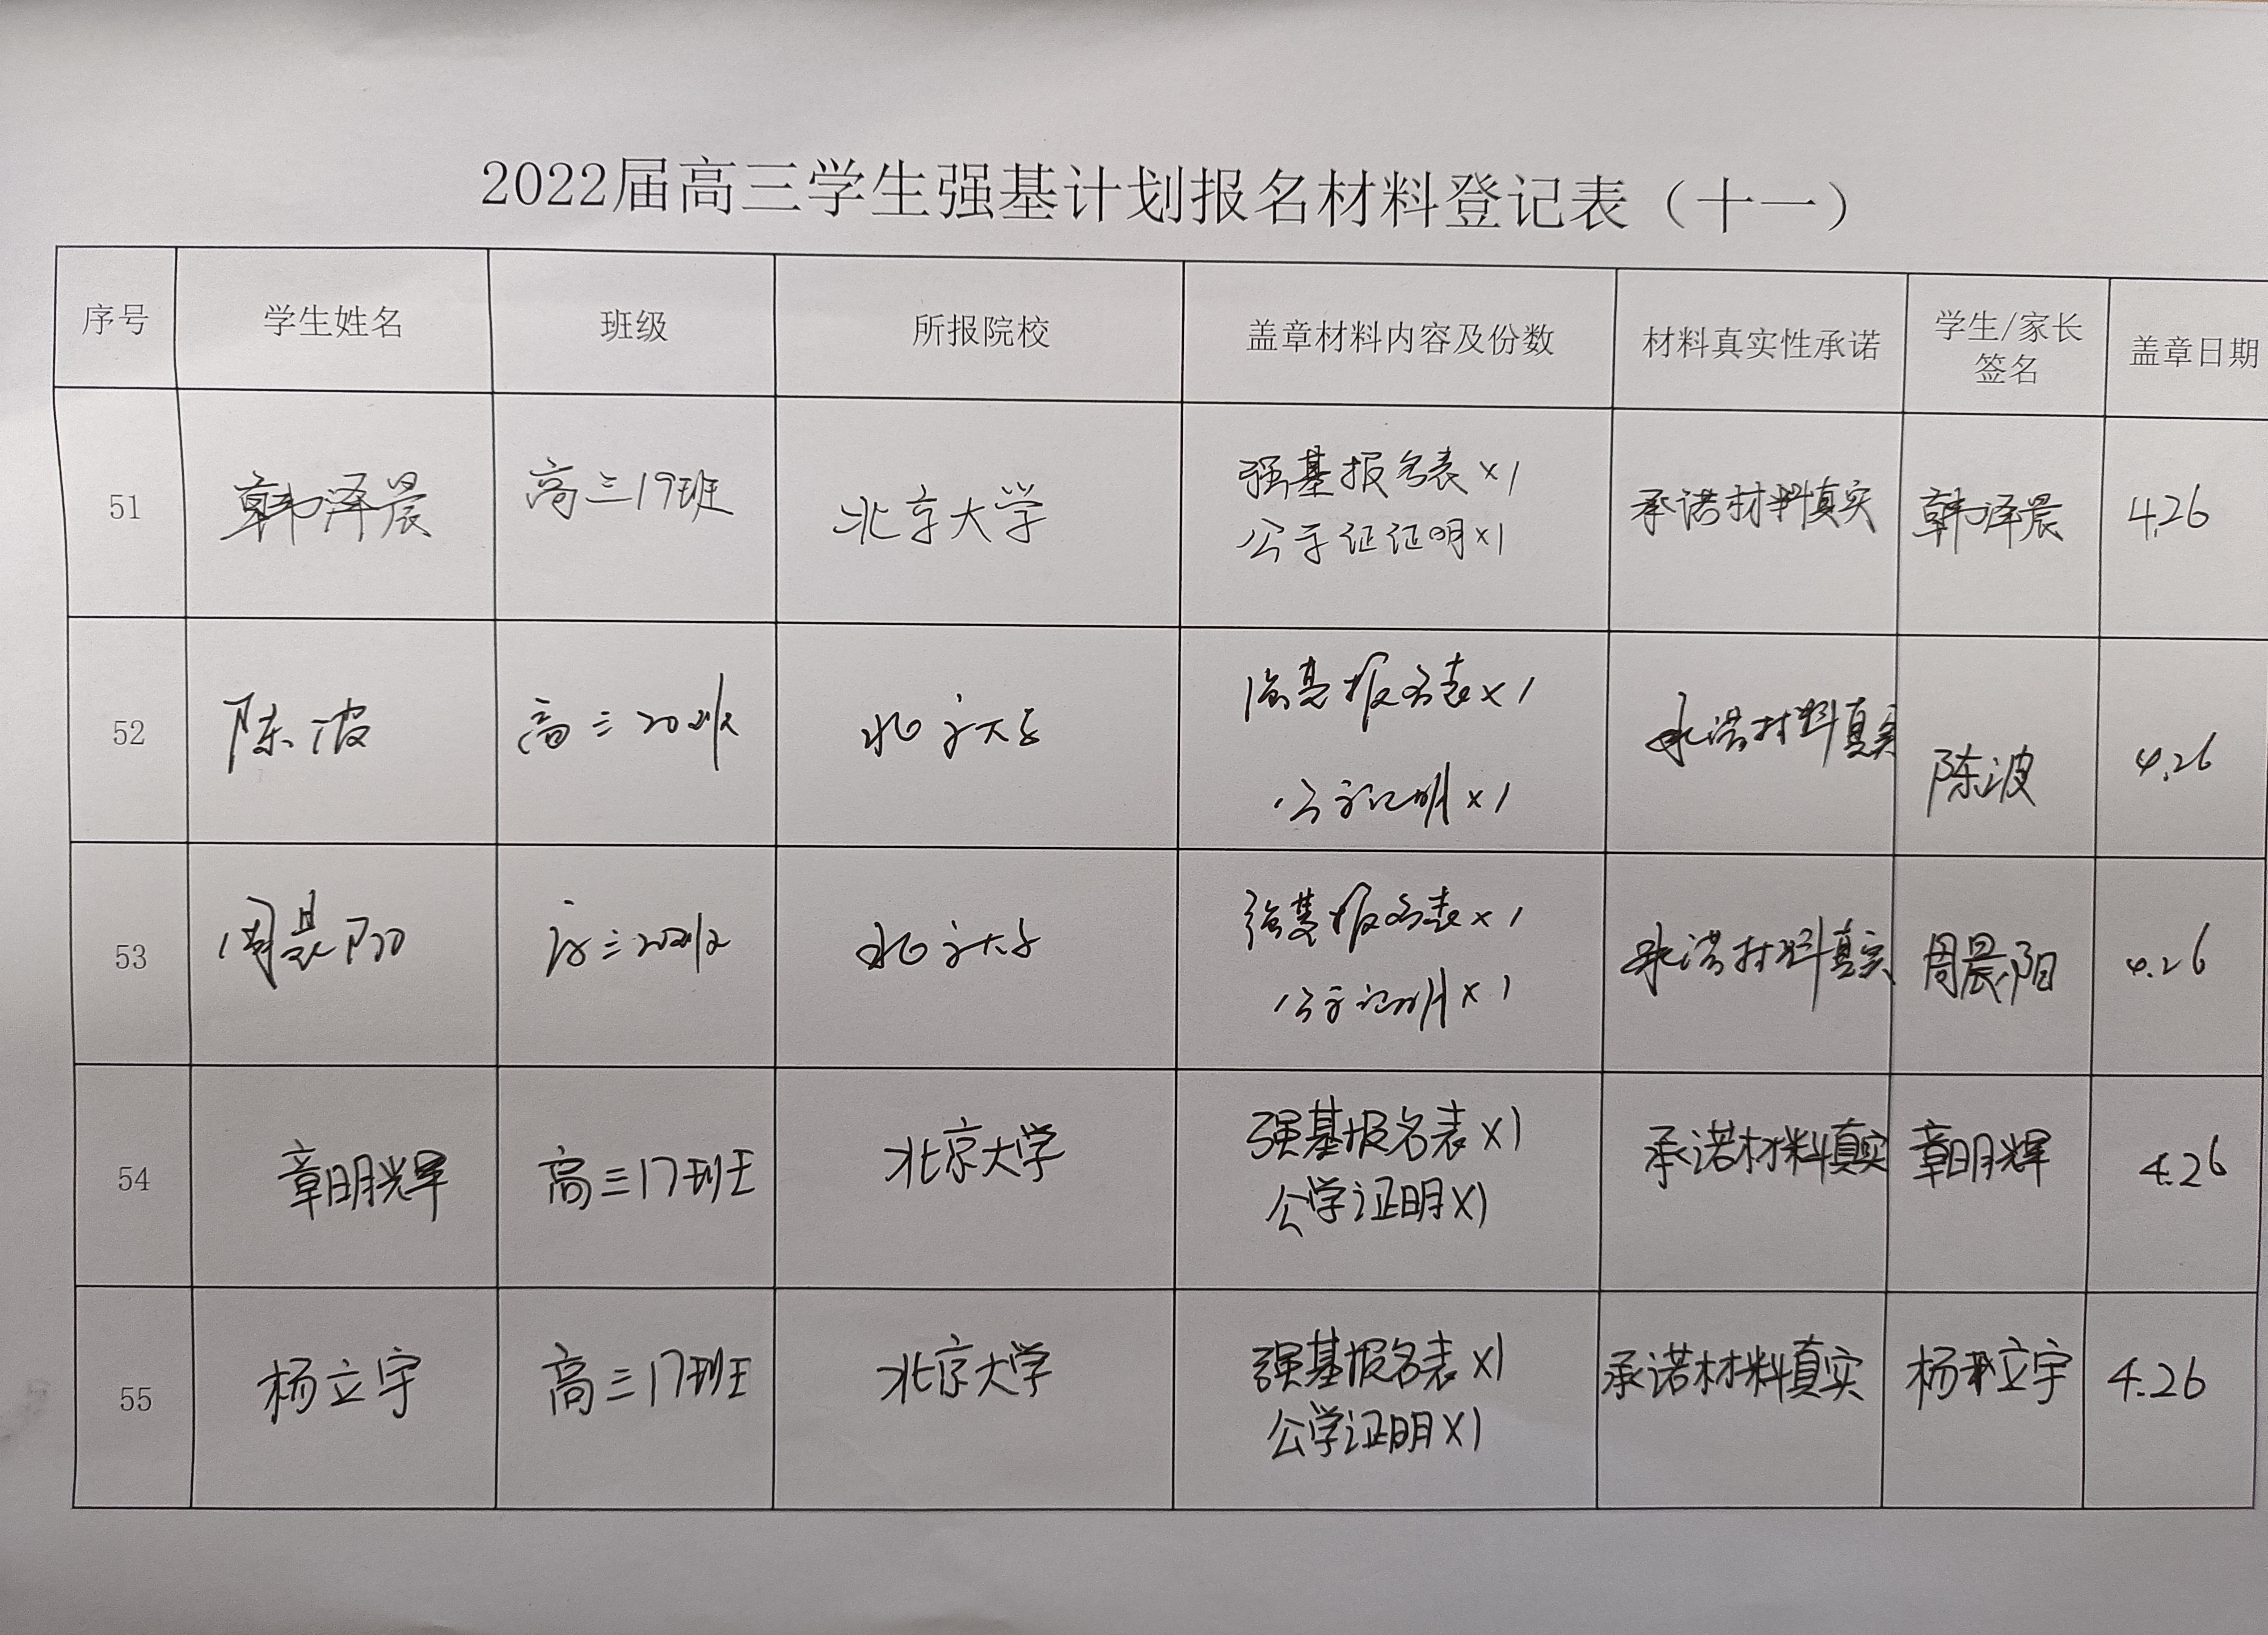 2022届高三学生强基计划报名材料登记表（十一）
序号 学生姓名 班级 所报院校 盖章材料内容及份数 材料真实性承诺 学生/家长签名 盖章日期
51 韩泽晨 高三19班 北京大学 强基报名表×1 承诺材料真实 韩泽晨 4.26
公示证证明×1
52 陈波 高三20班 北京大学 强基报名表×1 承诺材料真实 陈波 4.26
公示证明×1
53 周晨阳 高三20班 北京大学 强基报名表×1 承诺材料真实 周晨阳 4.26
公示证明×1
54 章明辉 高三17班 北京大学 强基报名表×1 承诺材料真实 章明辉 4.26
公学证明×1
55 杨立宇 高三17班 北京大学 强基报名表×1 承诺材料真实 杨立宇 4.26
公学证明×1